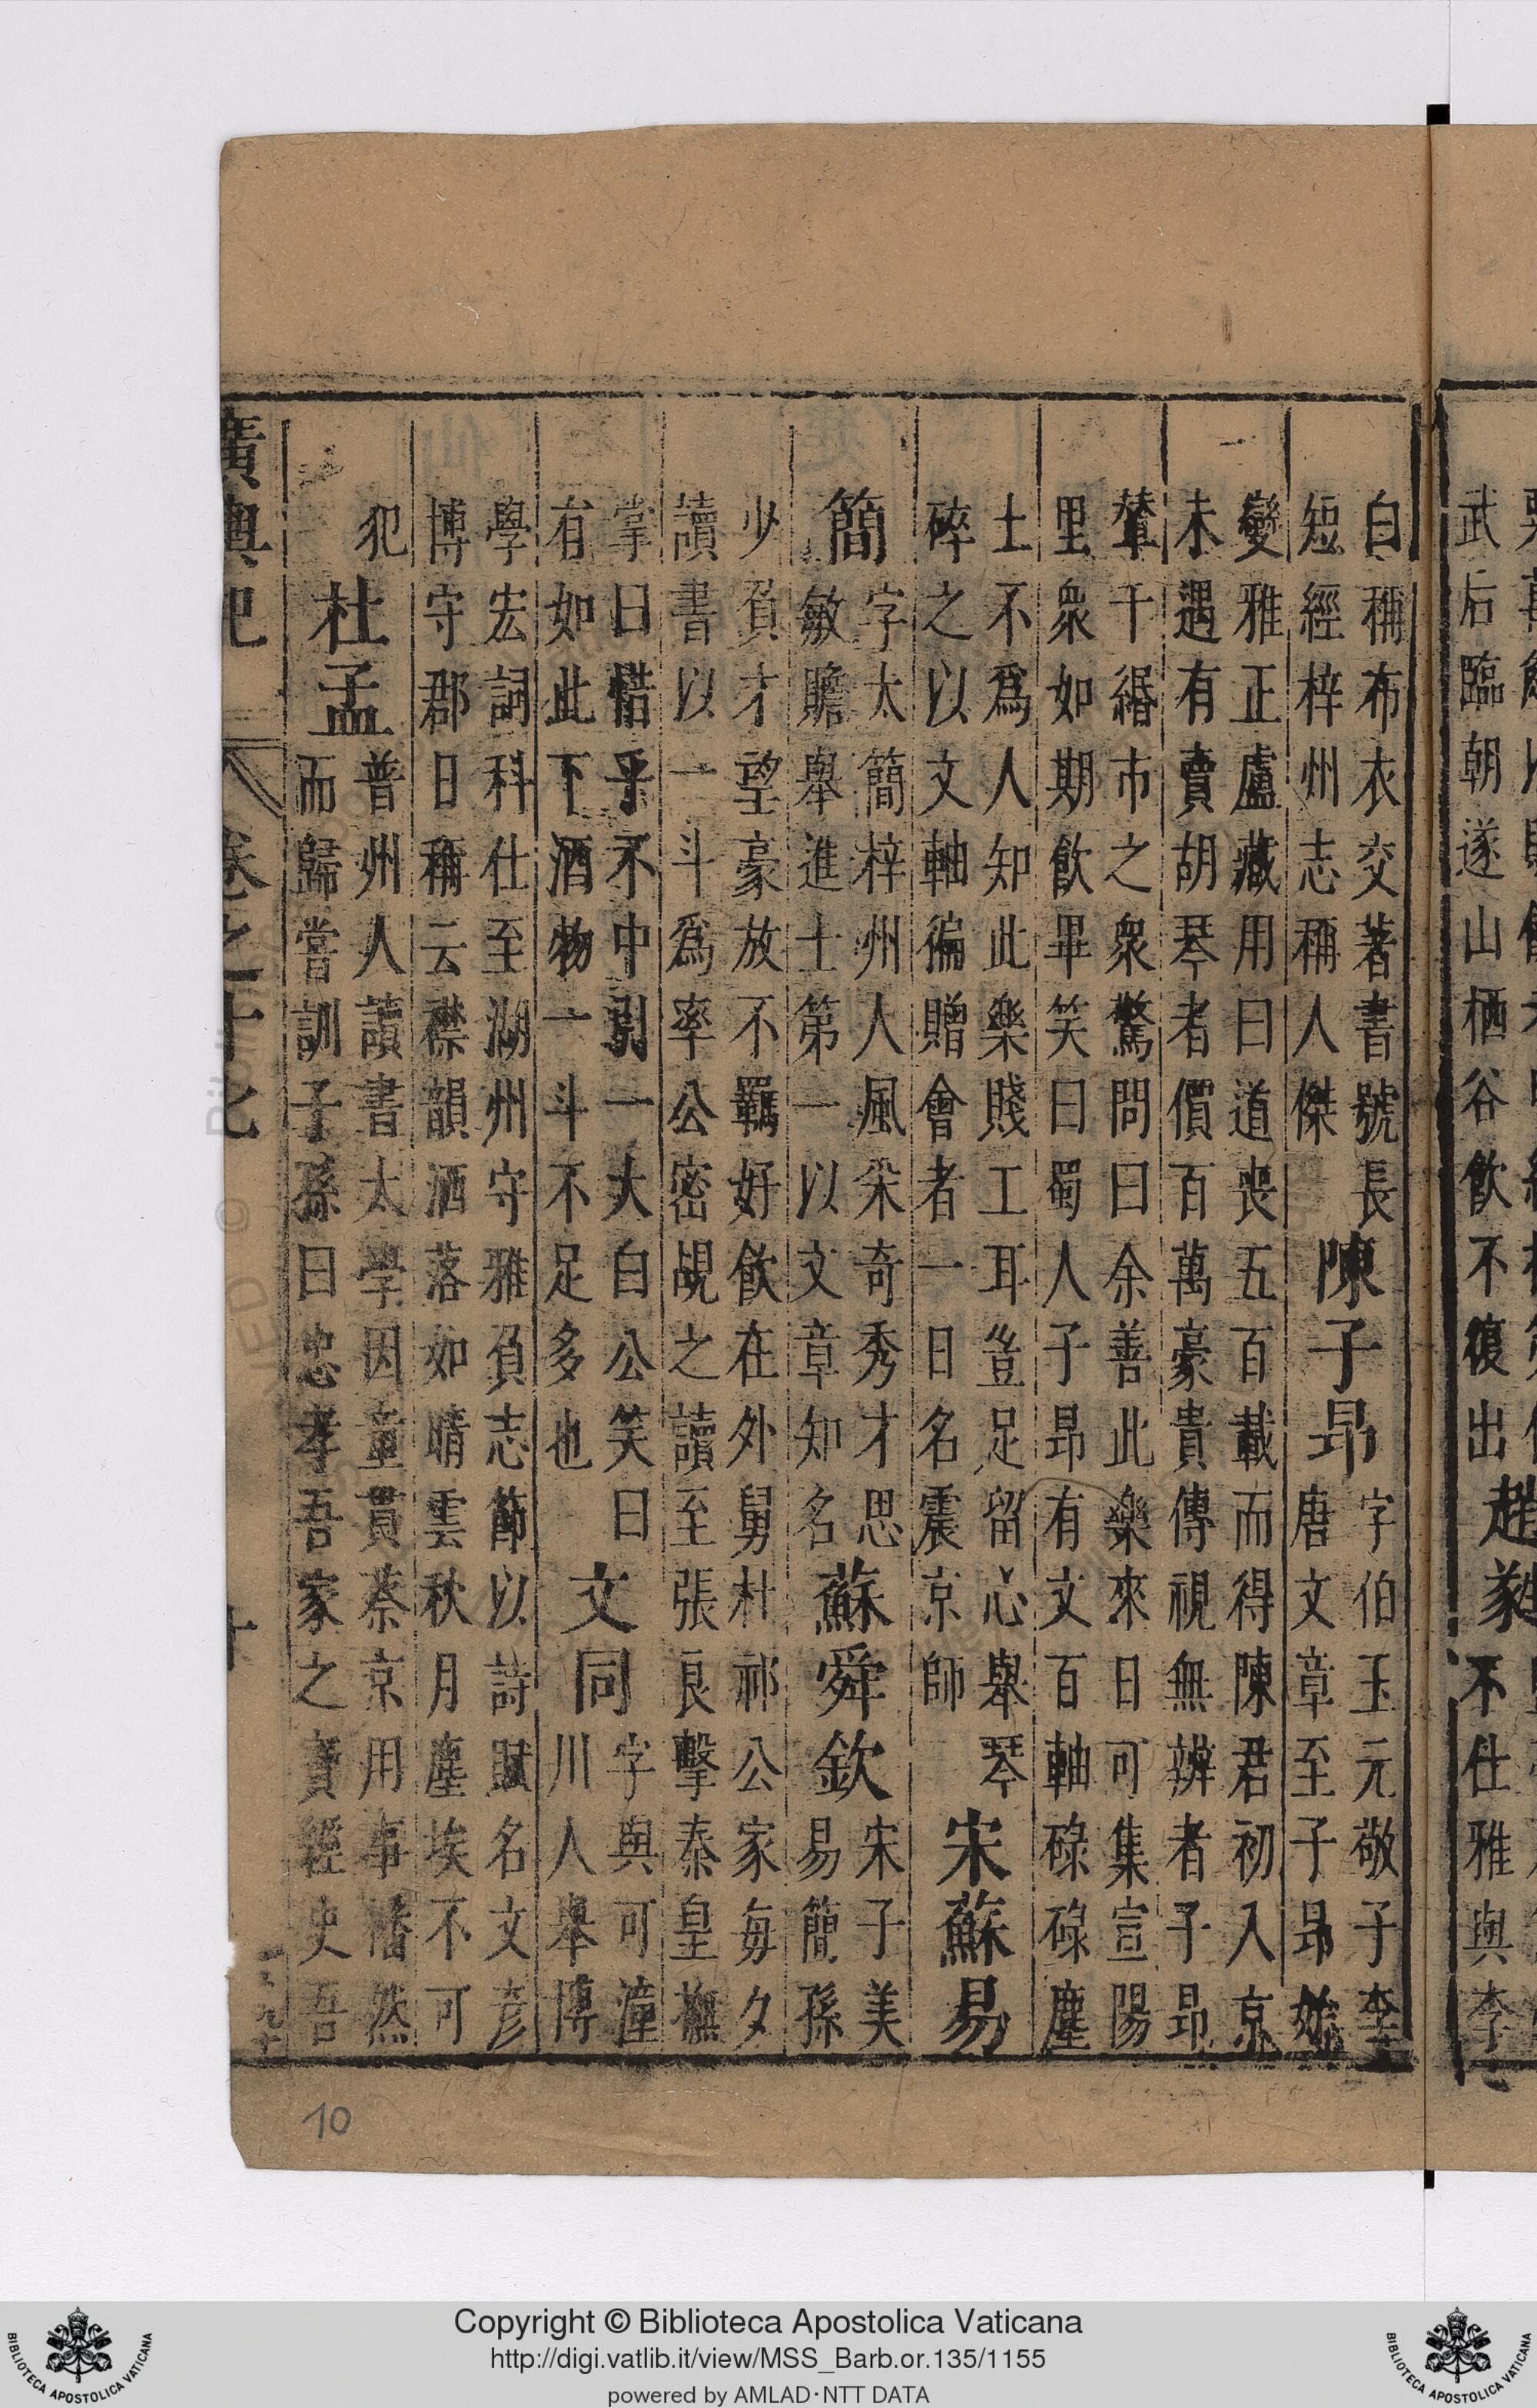 武后臨朝遂山栖谷飲不復出
趙蕤
不仕雅與李
白稱布衣交著書號長
短經梓州志稱人傑
陳子昂
字伯玉元敬子李
唐文章至子昂始
變雅正盧藏用曰道喪五百載而得陳君初入京
未遇有賣胡琴者價百萬豪貴傳視無辨者子昂
輦千緡市之衆驚問曰余善此樂來日可集宣陽
里衆如期飲畢笑曰蜀人子昂有文百軸碌碌塵
土不爲人知此樂賤工耳豈足留心舉琴
碎之以文軸徧贈會者一日名震京師
宋蘇易
簡
字太簡梓州人風采奇秀才思
敏贍舉進士第一以文章知名
蘇舜欽
宋子美
易簡孫
少負才望豪放不羈好飲在外舅杜祁公家每夕
讀書以一斗爲率公密覘之讀至張良擊秦皇撫
掌曰惜乎不中引一大白公笑曰
有如此下酒物一斗不足多也
文同
字與可潼
川人舉博
學宏詞科仕至湖州守雅負志節以詩賦名文彥
博守郡日稱云襟韻洒落如晴雲秋月塵埃不可
犯
杜孟
普州人讀書太學因童貫蔡京用事幡然
而歸嘗訓子孫曰忠孝吾家之寶經史吾
廣輿記 卷之十七 十
10
Copyright © Biblioteca Apostolica Vaticana
http://digi.vatlib.it/view/MSS_Barb.or.135/1155
powered by AMLAD·NTT DATA
BIBLIOTECA APOSTOLICA VATICANA
BIBLIOTECA APOSTOLICA VATICANA